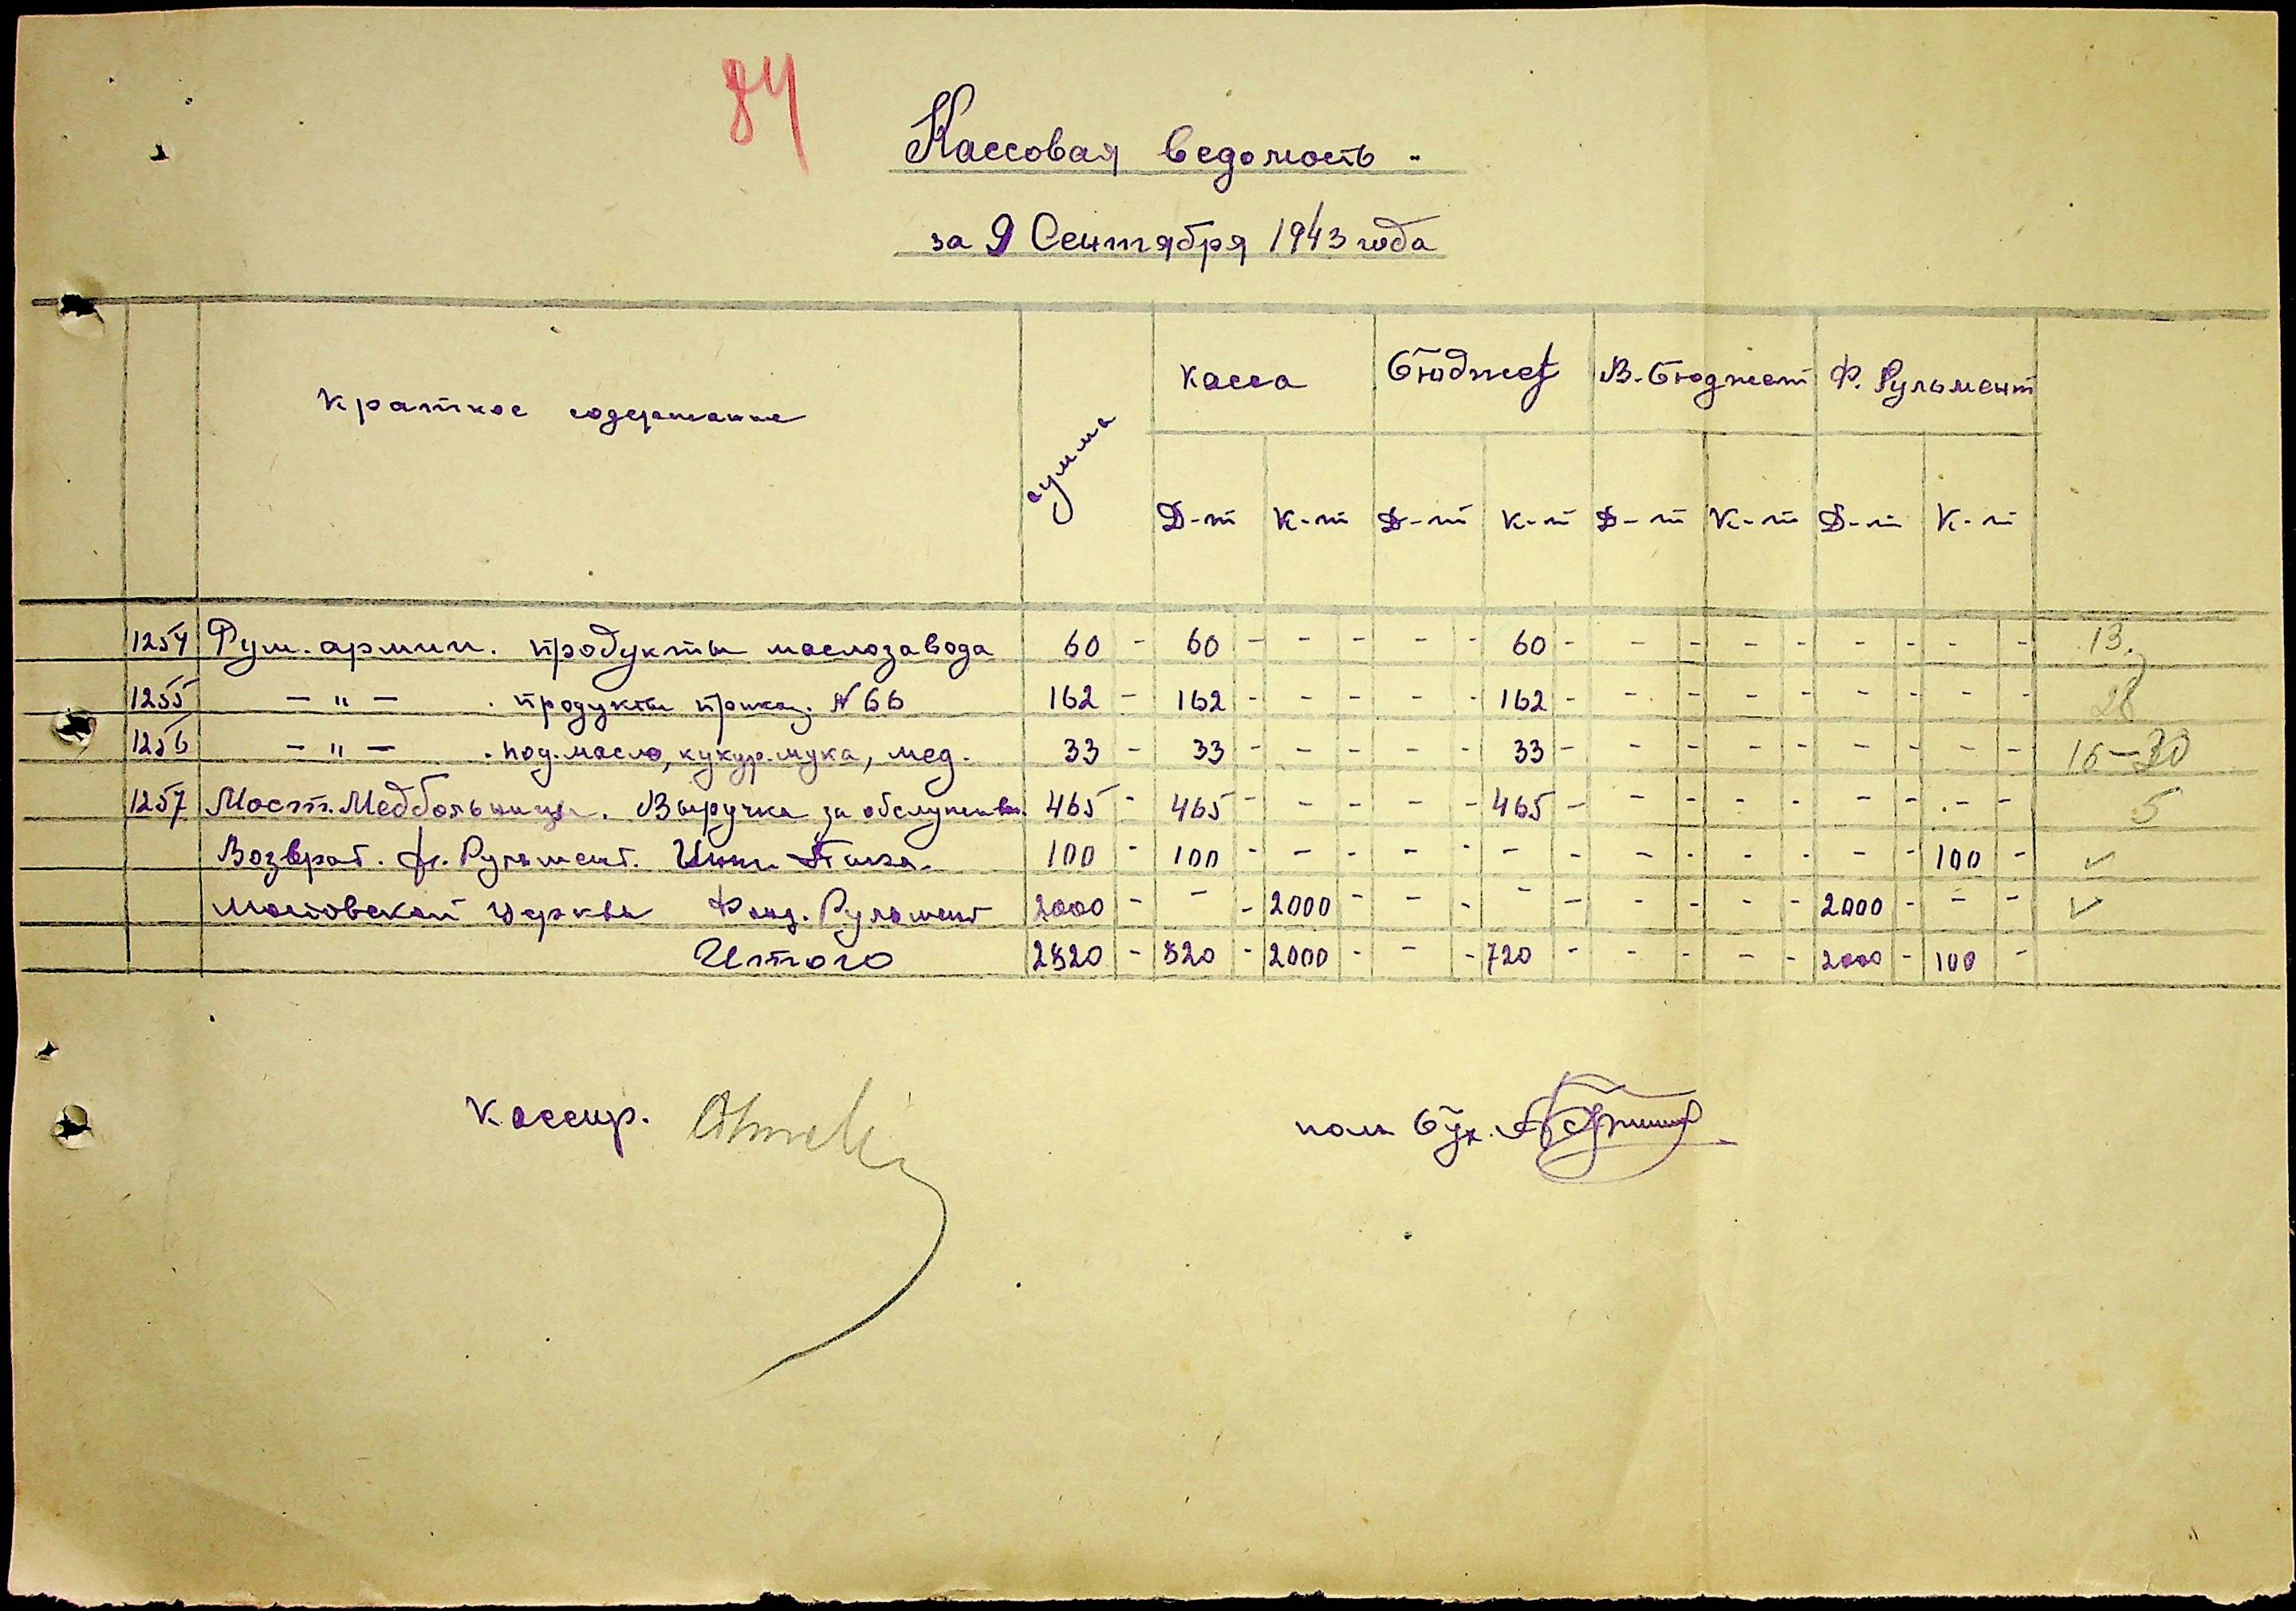 84
Кассовая ведомость.
за 9 Сентября 1943 года
Краткое содержание сумма Касса бюджет В.-бюджет Ф. Рульмент
Д-т К-т Д-т К-т Д-т К-т Д-т К-т
1254 Рум. армии. продукты маслозавода 60 - 60 - - - - - 60 - - - - - - - - - 13.
1255 - " - . продукты приказ. N 66 162 - 162 - - - - - 162 - - - - - - - - - 28
1256 - " - . под. масло, кукур. мука, мед. 33 - 33 - - - - - 33 - - - - - - - - - 16-30
1257 Мост. Медбольницы. Выручка за обслужив. 465 - 465 - - - - - 465 - - - - - - - - - 5
Возврат. ф. Рульмент. 100 - 100 - - - - - - - - - - - - - 100 - ✓
Мостовской Церквы Фонд. Рульмент 2000 - - - 2000 - - - - - - - - - 2000 - - - ✓
Итого 2820 - 820 - 2000 - - - 720 - - - - - 2000 - 100 -
Кассир.
пом бух.